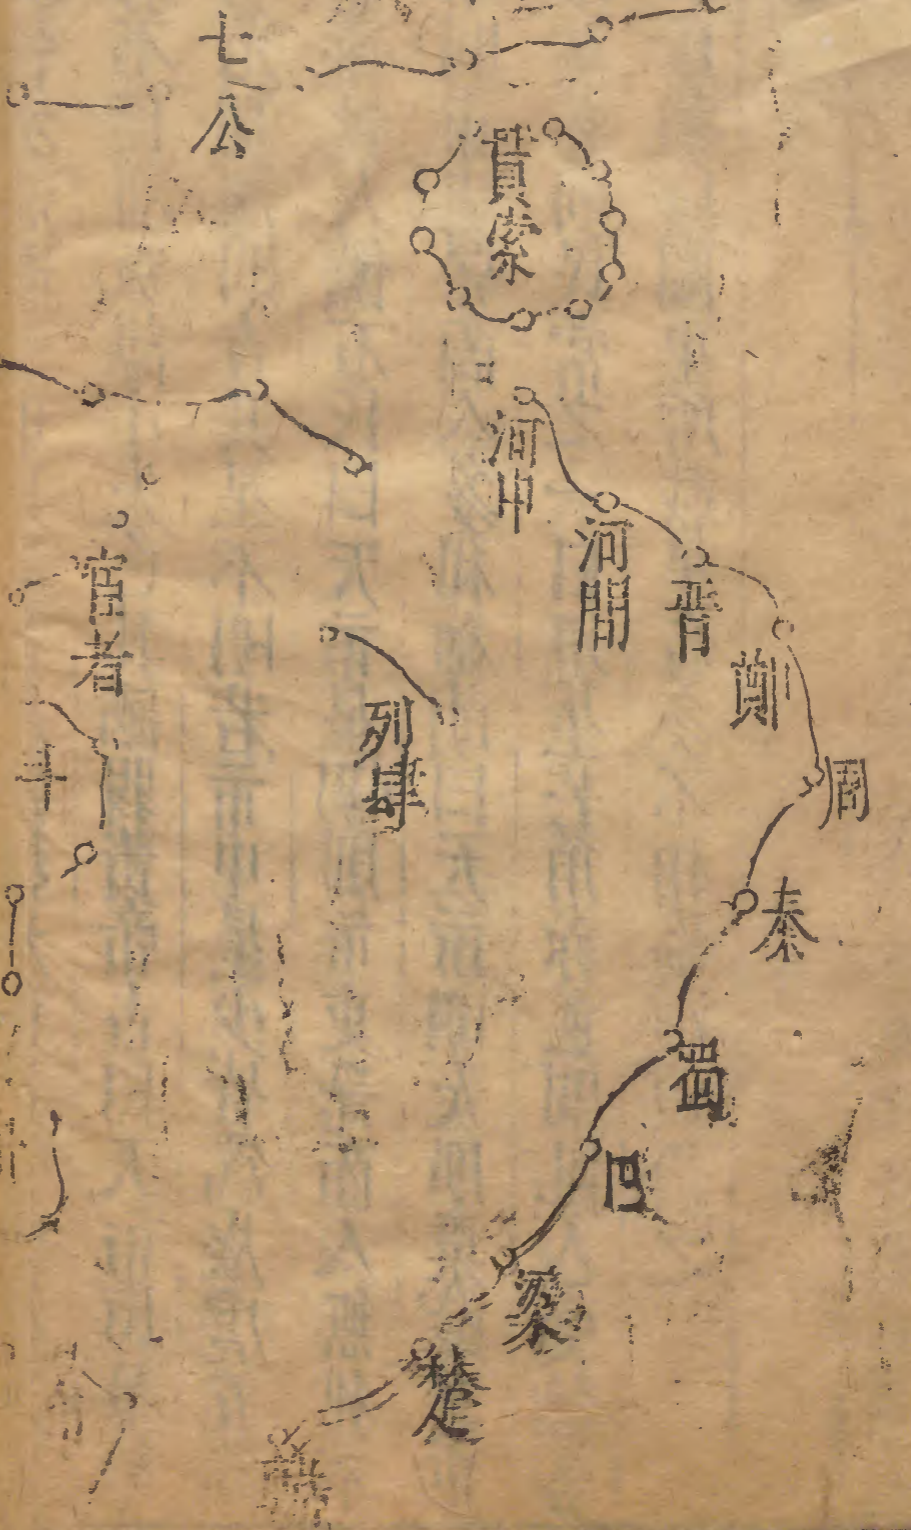 七公
貫索
河中
河間
晉
鄭
周
秦
蜀
巴
梁
楚
列肆
宦者
斗